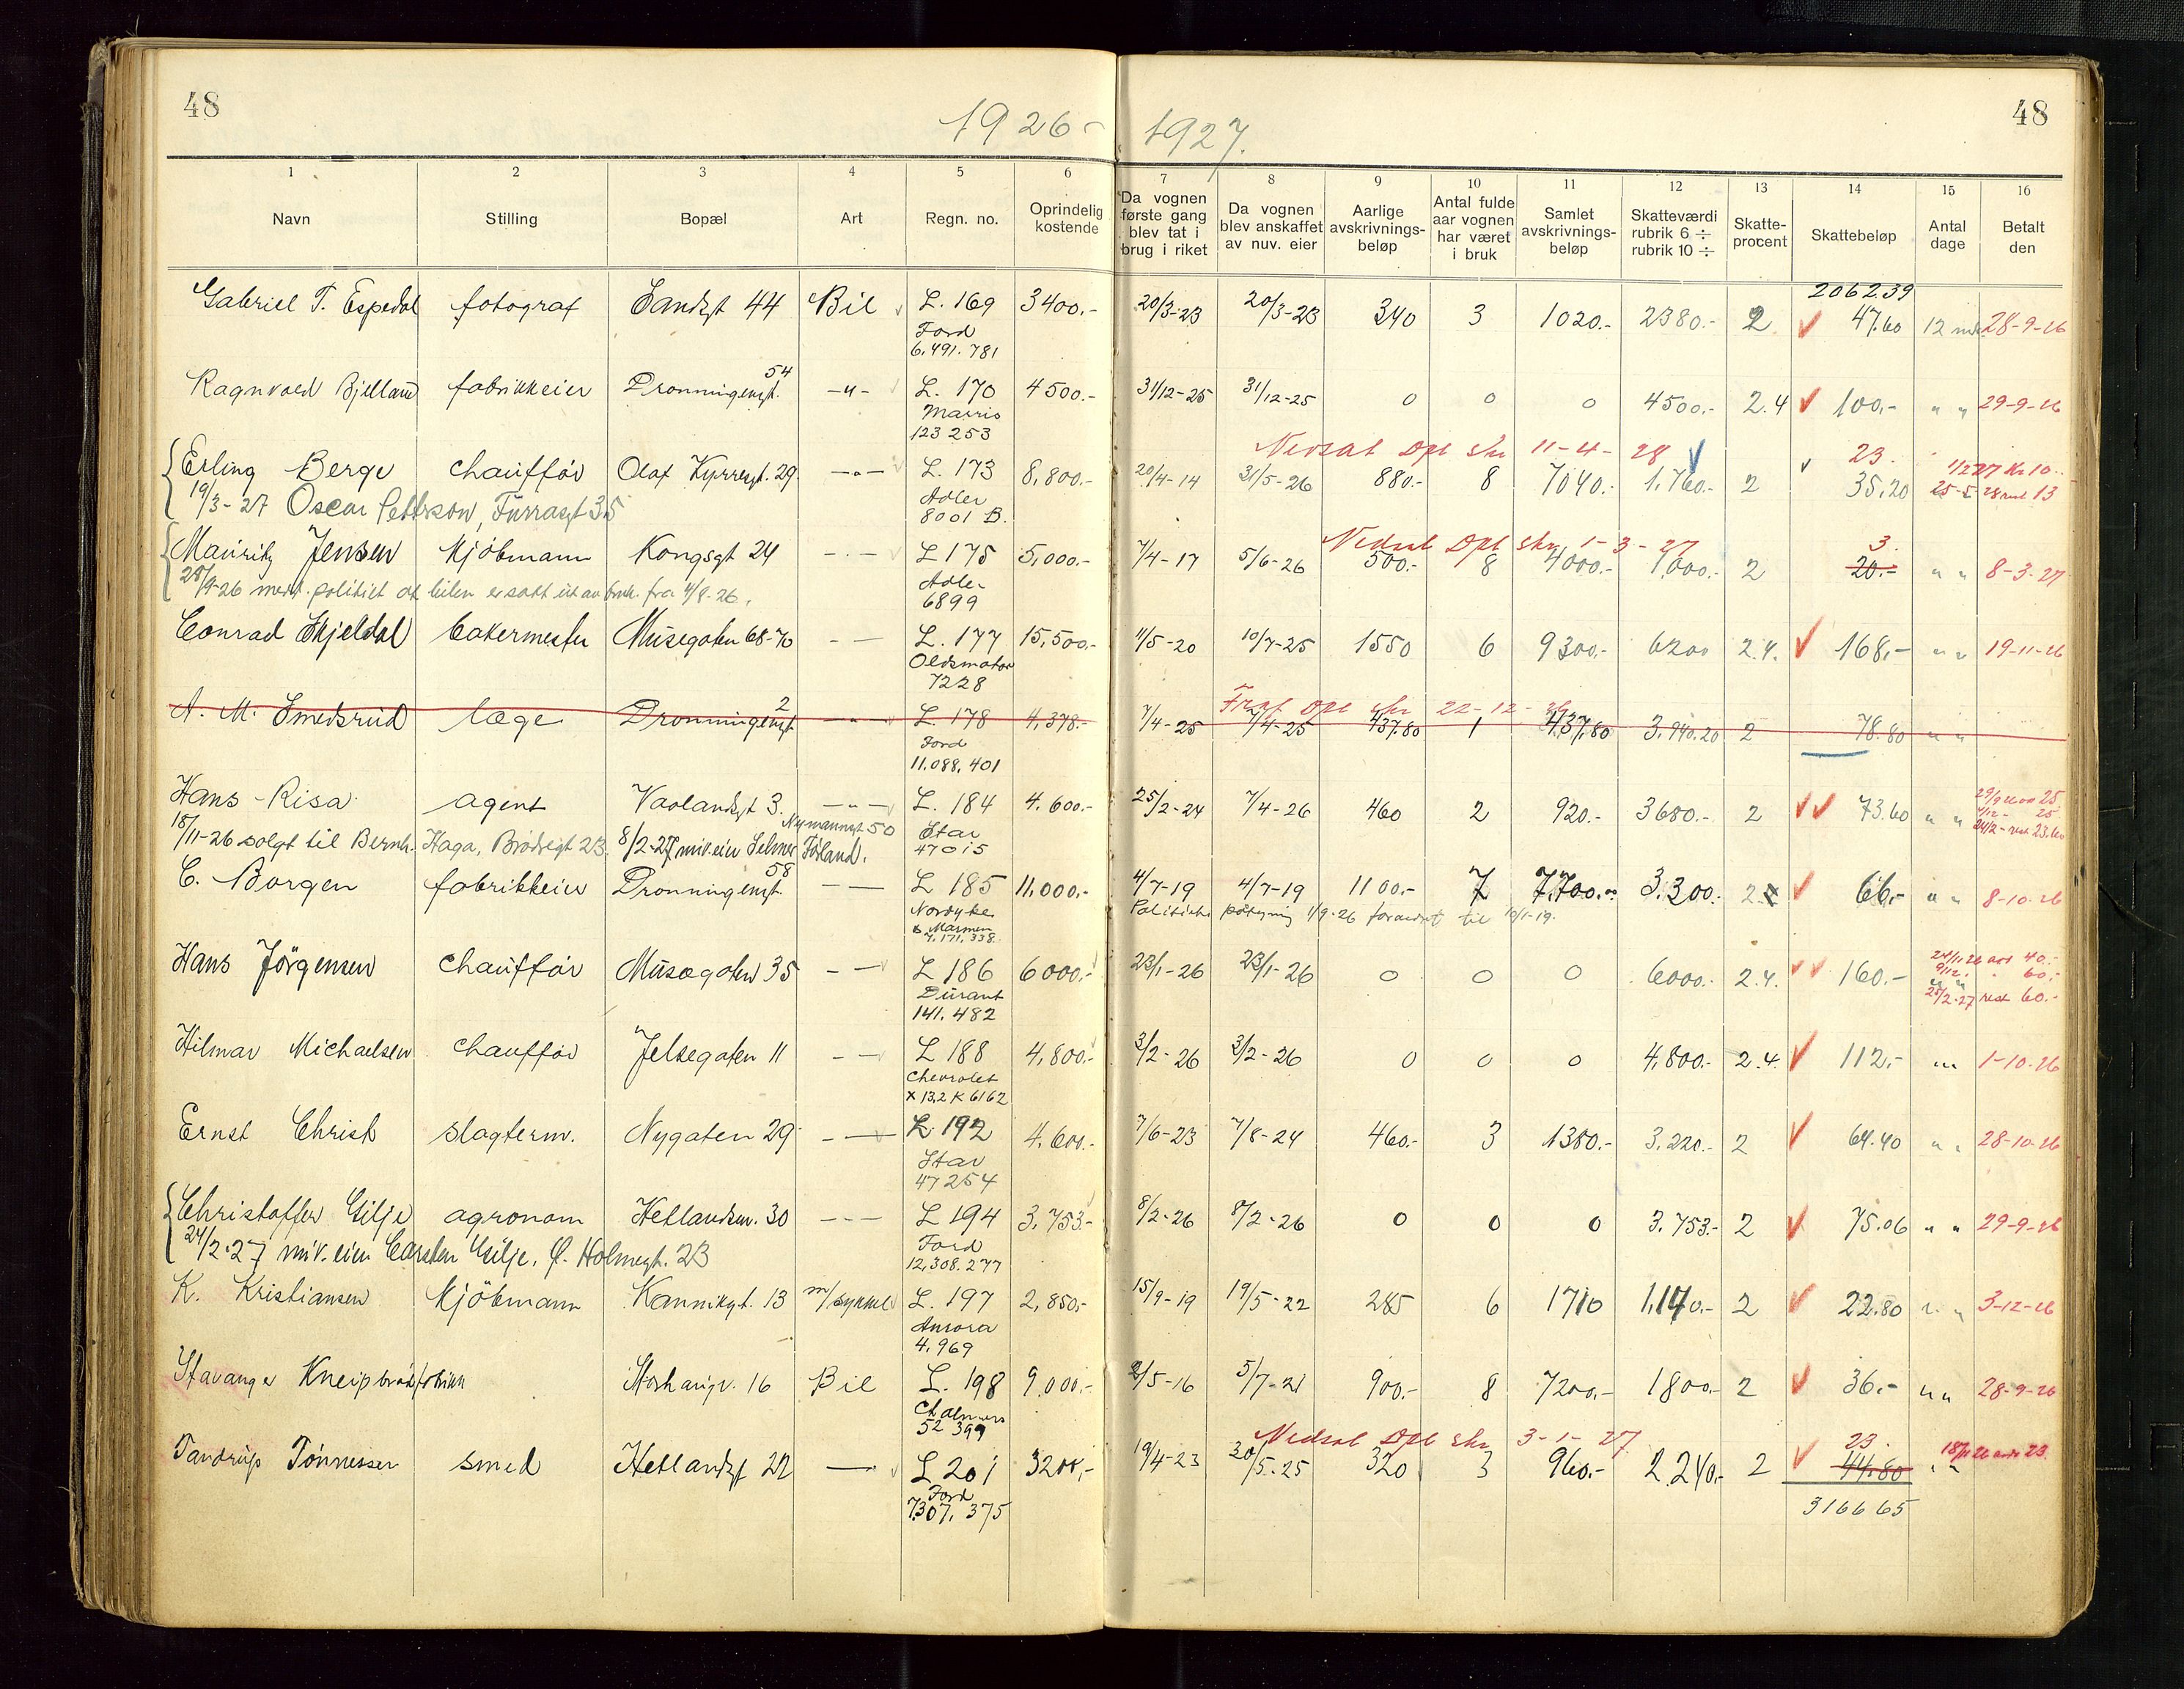 48
1926-1927.
48
1 2 3 4 5 6 7 8 9 10 11 12 13 14 15 16
Navn Stilling Bopæl Art Regn. no. Oprindelig kostende Da vognen første gang blev tat i brug i riket Da vognen blev anskaffet av nuv. eier Aarlige avskrivnings-beløp Antal fulde aar vognen har været i bruk Samlet avskrivnings-beløp Skatteværdi rubrik 6 ÷ rubrik 10 ÷ Skatte-procent Skattebeløp Antal dage Betalt den
206239
Gabriel T. Espedal fotograf Sandsgt 44 Bil L. 169 3400.- 20/3-23 20/3-23 340 3 1020.- 2380.- 2 47.60 12 28-9-26
Ford
6.491.781
54
Ragnvald Bjelland fabrikkeier Dronningensgt. -"- L. 170 4500.- 31/12-25 31/12-25 0 0 0 4500.- 2.4 100.- " " 29-9-26
Morris
123253
Nedsat Dpt skr 11-4-28 23.
Erling Berge chauffør Olaf Kyrresgt. 29 -"- L. 173 8,800.- 20/4-14 31/5-26 880.- 8 7040.- 1.760.- 2 35.20
25-5-28 rest 13
19/3-27 Oscar Pettersson, Furrasgt 35
Adler
8001 B.
Nedsat Dpt skr 1-3-27 3.
Mauritz Jensen kjøbmann Kongsgt 24 -"- L 175 5,000.- 7/4-17 5/6-26 500.- 8 4000.- 1,000.- 2 20.- " " 8-3-27
28/9-26 politiet at bilen er satt ut av bruk fra 4/8-26.
Adler
6899
Conrad Skjeldal bakermester Musegaten 68-70 - - L. 177 15,500.- 11/5-20 10/7-25 1550 6 9300.- 6200 2.4. 168.- " " 19-11-26
Oldsmobile
7228
Frat Dpt skr 22-12-26
2
A. M. Smedsrud læge Dronningensgt -"- L. 178 4,378.- 7/4-25 7/4-25 437.80 1 437.80 3.940.20 2 78.80 " "
Ford
11.088.401
Hans Risa agent Vaalandsgt 3. -"- L. 184 4.600.- 25/2-24 7/4-26 460 2 920.- 3680.- 2 73.60 " "
25.
25
24/2- rest 23.60
Nymannsgt 50
18/11-26 solgt til Bernh. Haga, Brødregt 23. 8/2-27 niv. eier Førland.
Star
47015
58
C. Borgen fabrikkeier Dronningensgt. - - L 185 11,000.- 4/7-19 4/7-19 1100.- 7 7.700.- 3.300.- 2 66.- " " 8-10-26
Politiets 1/9-26 forandret til 10/1-19.
7.171.338
Hans Jørgensen chauffør Musegaten 35 - - L 186 6000.- 23/1-26 23/1-26 0 0 0 6000.- 2.4. 160.-
40.-
60.-
25/2-27 rest 60.-
Durant
141.482
Hilmar Michaelsen chauffør Jelsegaten 11 - - L 188 4,800.- 3/2-26 3/2-26 0 0 0 4.800.- 2.4. 112.- " " 1-10-26
Chevrolet
X 13,2 K 6162
Ernst Christ slagterm. Nygaten 29 - - L 192 4.600.- 7/6-23 7/8-24 460.- 3 1380.- 3.220.- 2 64.40 " " 28-10-26
Star
47254
Christoffer Gilje agronom Hetlandsv. 30 --- L 194 3.753.- 8/2-26 8/2-26 0 0 0 3.753.- 2 75.06 " " 29-9-26
24/2-27 niv. eier Carsten Gilje, Ø. Holmegt. 23
Ford
12,308.277
K. Kristiansen kjöbmann Kannikgt. 13 m/sykkel L. 197 2,850.- 15/9-19 19/5-22 285 6 1710 1.140.- 2 22.80 " " 3-12-26
Aurora
4.969
Stavanger Kneipbrødfabrikk 16 Bil L. 198 9.000.- 2/5-16 5/7-21 900.- 8 7200.- 1800.- 2 36.- " " 28-9-26
Chalmers
52399
Nedsat Dpt skr 3-1-27 23.
Tandrup Tönnessen smed Hetlandsgt 22 - L 201 3200,- 19/4-23 30/5-25 320 3 960.- 2.240.- 2 44.80 " "
Ford
7.307.375
316665